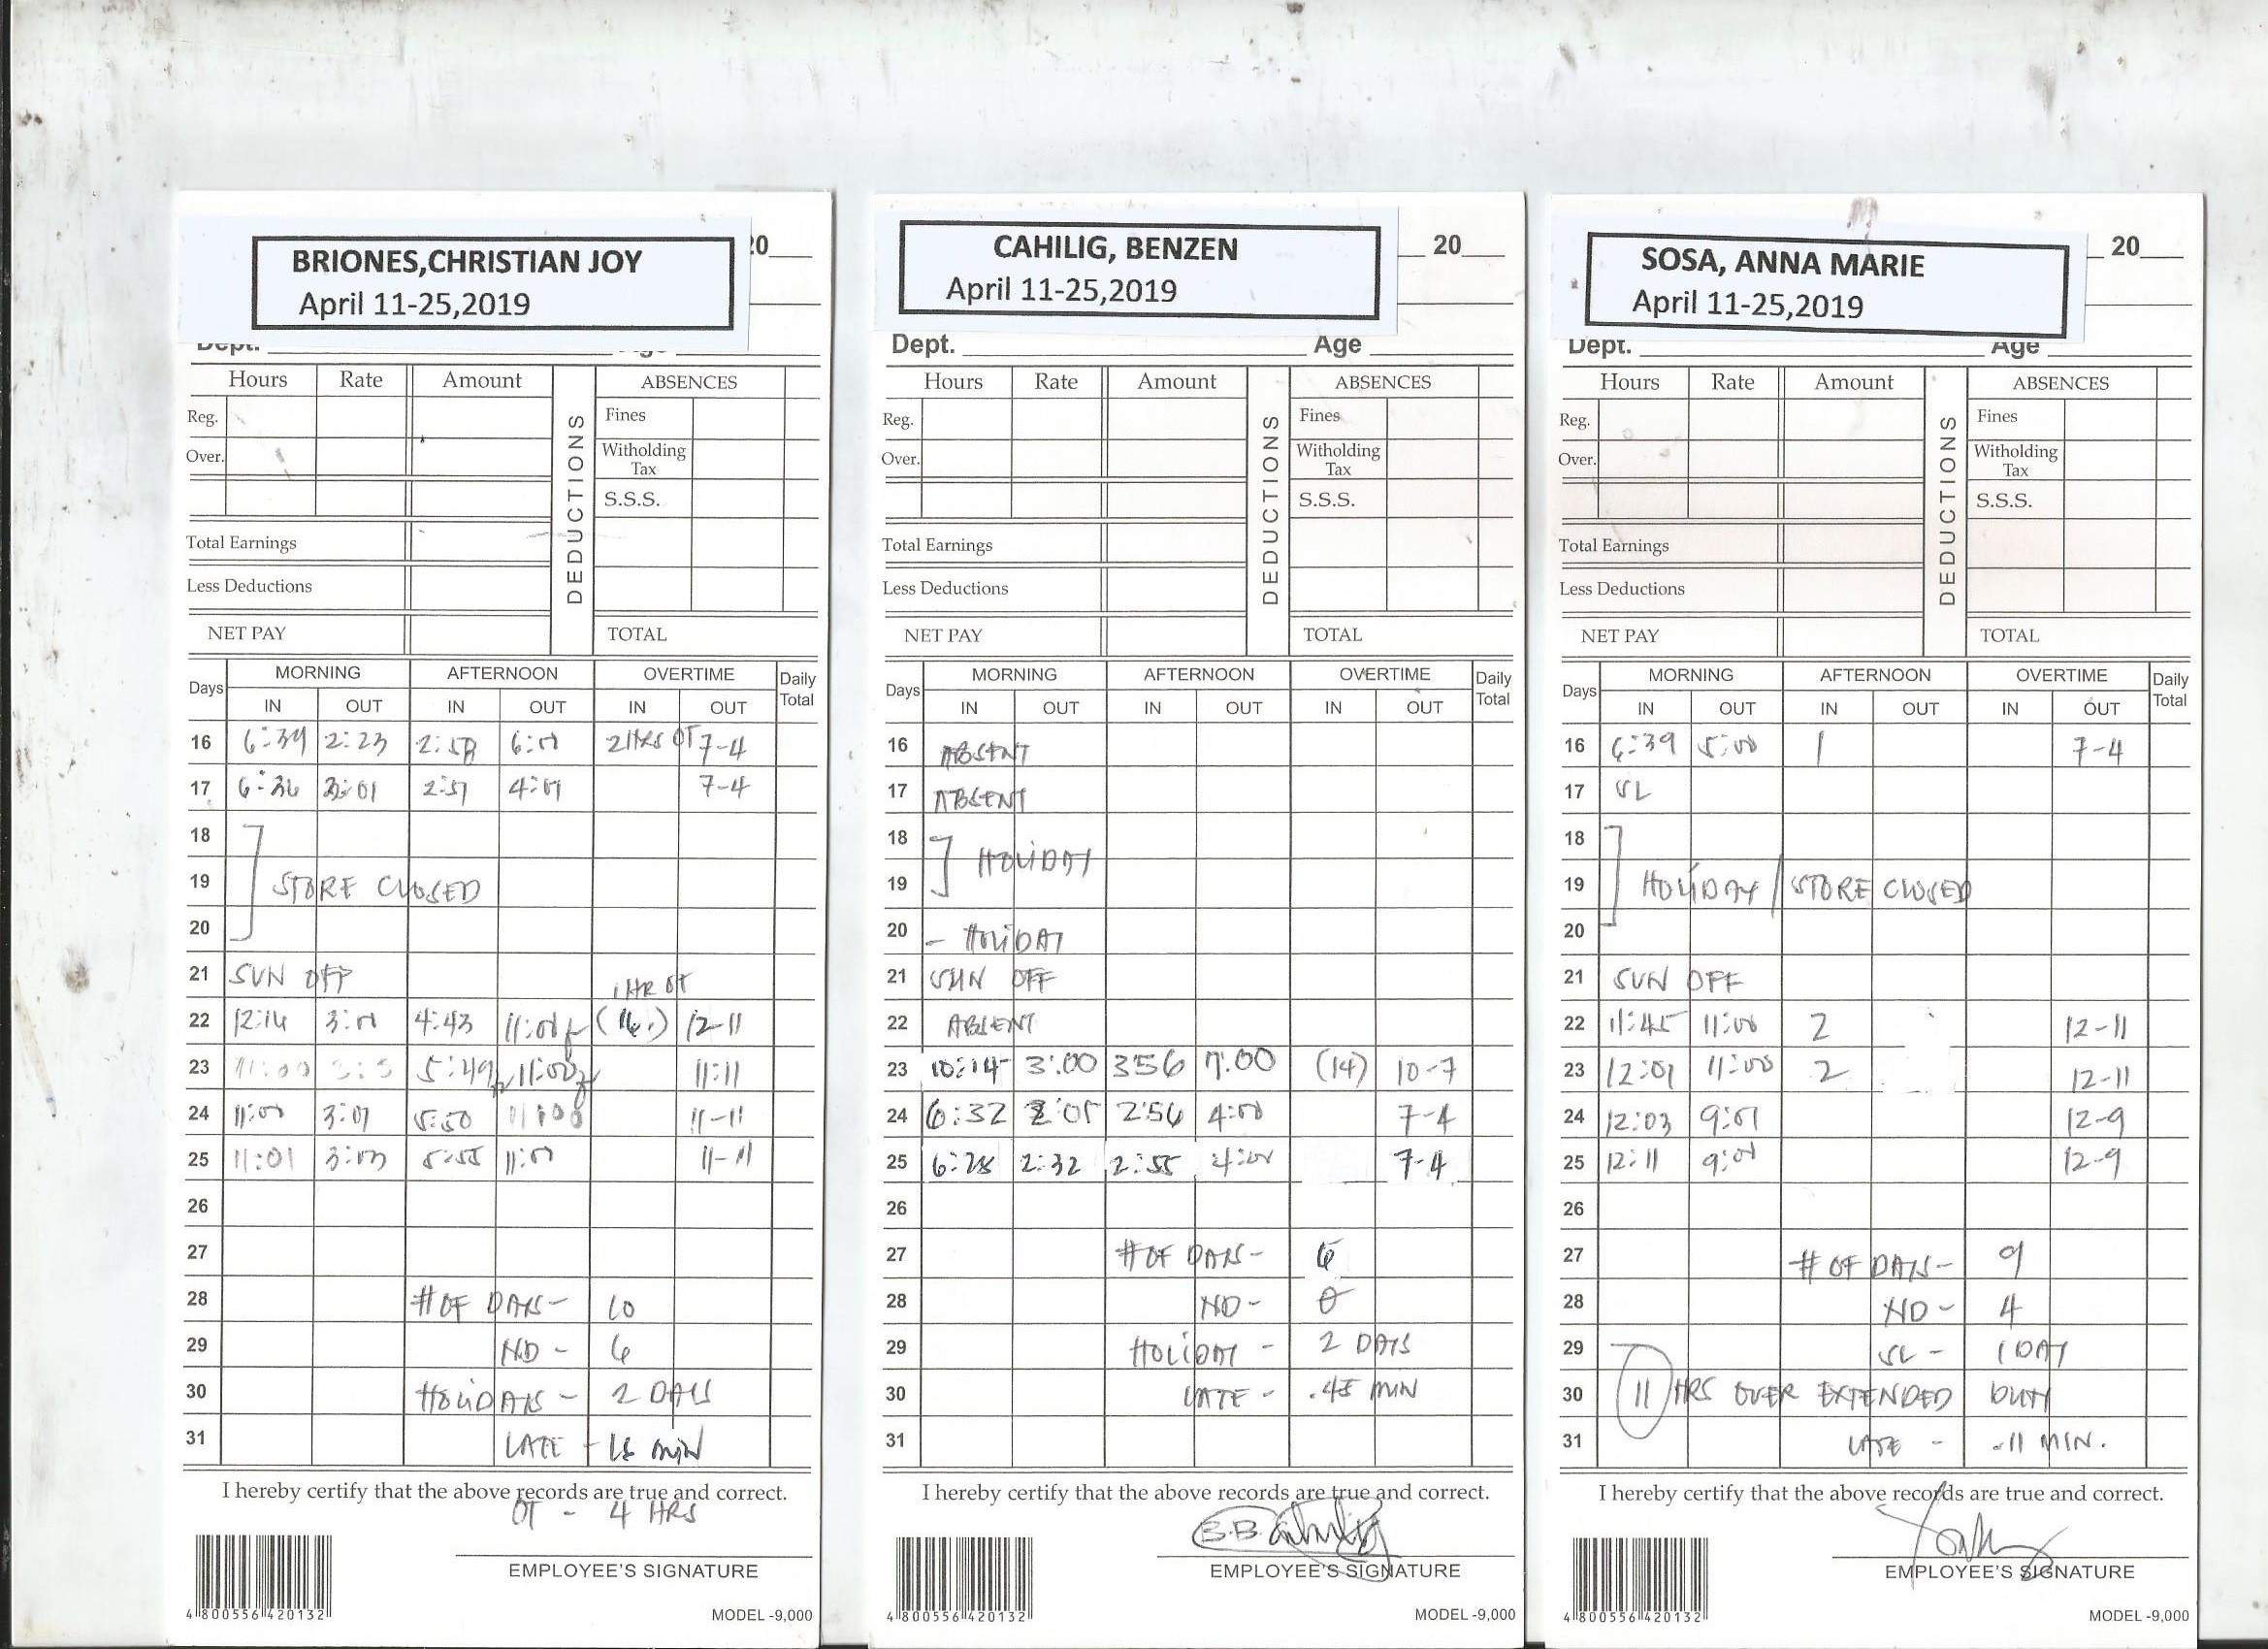 BRIONES,CHRISTIAN JOY
April 11-25,2019
20
Dept. Age
Hours Rate Amount DEDUCTIONS ABSENCES
Reg. Fines
Over. Witholding Tax
S.S.S.
Total Earnings
Less Deductions
NET PAY TOTAL
Days MORNING AFTERNOON OVERTIME Daily Total
IN OUT IN OUT IN OUT
16 6:39 2:23 2HRS OT 7-4
17 6:36 2:51 4:01 7-4
18
19 STORE CLOSED
20
21 SUN OFF
1 HR OT
22 12:16 3:01 4:43 11:00 (16) 12-11
23 11:00 5:49 11:00 11:11
24 11:01 3:01 5:50 11:00 11-11
25 11:01 3:03 5:55 11:01 11-11
26
27
28 # OF DAYS - 10
29 ND - 6
30 HOLIDAYS - 2 DAYS
31 LATE - 16 MIN
I hereby certify that the above records are true and correct.
OT - 4 HRS
EMPLOYEE'S SIGNATURE
4 800556 420132
MODEL -9,000
CAHILIG, BENZEN
April 11-25,2019
20
Dept. Age
Hours Rate Amount DEDUCTIONS ABSENCES
Reg. Fines
Over. Witholding Tax
S.S.S.
Total Earnings
Less Deductions
NET PAY TOTAL
Days MORNING AFTERNOON OVERTIME Daily Total
IN OUT IN OUT IN OUT
16 ABSENT
17 ABSENT
18 HOLIDAY
19
20 - HOLIDAY
21 SUN OFF
22 ABSENT
23 10:14 3:00 3:56 7:00 (14) 10-7
24 6:32 2:01 2:56 4:00 7-4
25 6:28 2:32 2:55 4:00 7-4
26
27 # OF DAYS - 6
28 ND - 0
29 HOLIDAY - 2 DAYS
30 LATE - .45 MIN
31
I hereby certify that the above records are true and correct.
EMPLOYEE'S SIGNATURE
4 800556 420132
MODEL -9,000
SOSA, ANNA MARIE
April 11-25,2019
20
Dept. Age
Hours Rate Amount DEDUCTIONS ABSENCES
Reg. Fines
Over. Witholding Tax
S.S.S.
Total Earnings
Less Deductions
NET PAY TOTAL
Days MORNING AFTERNOON OVERTIME Daily Total
IN OUT IN OUT IN OUT
16 6:39 5:00 1 7-4
17 SL
18
19 HOLIDAY / STORE CLOSED
20
21 SUN OFF
22 11:45 11:00 2 12-11
23 12:01 11:00 2 12-11
24 12:03 9:01 12-9
25 12:11 9:01 12-9
26
27 # OF DAYS - 9
28 ND - 4
29 SL - 1 DAY
30 11 HRS OVER EXTENDED DUTY
31 LATE - .11 MIN.
I hereby certify that the above records are true and correct.
EMPLOYEE'S SIGNATURE
4 800556 420132
MODEL -9,000